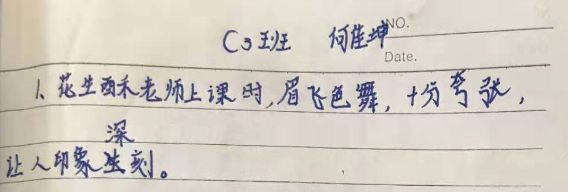 C3班 何佳坤 NO.
Date.
1、花生酥老师上课时,眉飞色舞,十分夸张,
深
让人印象生刻。